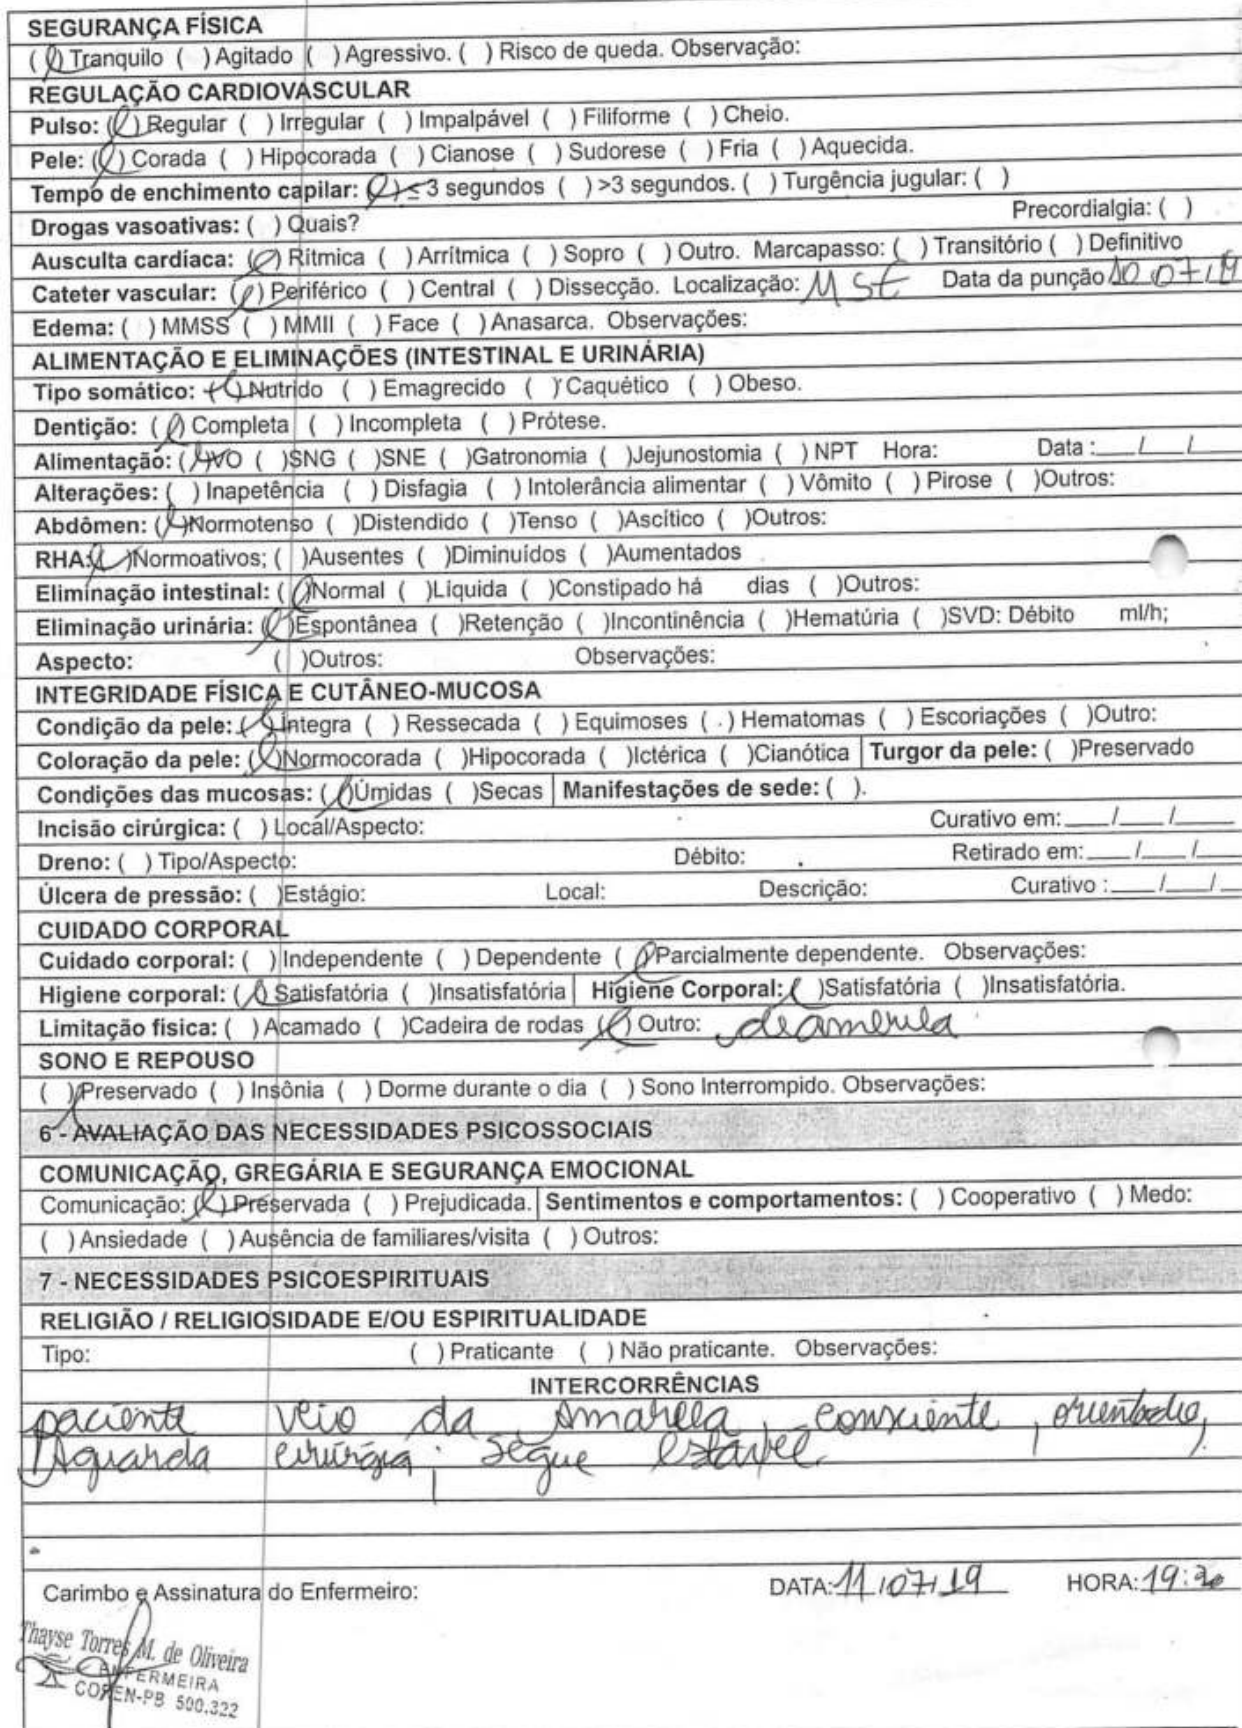 SEGURANÇA FÍSICA
(✓) Tranquilo ( ) Agitado ( ) Agressivo. ( ) Risco de queda. Observação:
REGULAÇÃO CARDIOVASCULAR
Pulso: (✓) Regular ( ) Irregular ( ) Impalpável ( ) Filiforme ( ) Cheio.
Pele: (✓) Corada ( ) Hipocorada ( ) Cianose ( ) Sudorese ( ) Fria ( ) Aquecida.
Tempo de enchimento capilar: (✓) ≤ 3 segundos ( ) >3 segundos. ( ) Turgência jugular: ( )
Drogas vasoativas: ( ) Quais? Precordialgia: ( )
Ausculta cardíaca: (✓) Rítmica ( ) Arrítmica ( ) Sopro ( ) Outro. Marcapasso: ( ) Transitório ( ) Definitivo
Cateter vascular: (✓) Periférico ( ) Central ( ) Dissecção. Localização: MSE Data da punção 10.07.19
Edema: ( ) MMSS ( ) MMII ( ) Face ( ) Anasarca. Observações:
ALIMENTAÇÃO E ELIMINAÇÕES (INTESTINAL E URINÁRIA)
Tipo somático: (✓) Nutrido ( ) Emagrecido ( ) Caquético ( ) Obeso.
Dentição: (✓) Completa ( ) Incompleta ( ) Prótese.
Alimentação: (✓) VO ( )SNG ( )SNE ( )Gatronomia ( )Jejunostomia ( ) NPT Hora: Data :___/___/___
Alterações: ( ) Inapetência ( ) Disfagia ( ) Intolerância alimentar ( ) Vômito ( ) Pirose ( )Outros:
Abdômen: (✓)Normotenso ( )Distendido ( )Tenso ( )Ascítico ( )Outros:
RHA:(✓)Normoativos; ( )Ausentes ( )Diminuídos ( )Aumentados
Eliminação intestinal: (✓)Normal ( )Líquida ( )Constipado há dias ( )Outros:
Eliminação urinária: (✓)Espontânea ( )Retenção ( )Incontinência ( )Hematúria ( )SVD: Débito ml/h;
Aspecto: ( )Outros: Observações:
INTEGRIDADE FÍSICA E CUTÂNEO-MUCOSA
Condição da pele: (✓)Íntegra ( ) Ressecada ( ) Equimoses ( ) Hematomas ( ) Escoriações ( )Outro:
Coloração da pele: (✓)Normocorada ( )Hipocorada ( )Ictérica ( )Cianótica Turgor da pele: ( )Preservado
Condições das mucosas: (✓)Úmidas ( )Secas Manifestações de sede: ( ).
Incisão cirúrgica: ( ) Local/Aspecto: Curativo em: ___/___/___
Dreno: ( ) Tipo/Aspecto: Débito: Retirado em: ___/___/___
Úlcera de pressão: ( )Estágio: Local: Descrição: Curativo : ___/___/___
CUIDADO CORPORAL
Cuidado corporal: ( ) Independente ( ) Dependente (✓)Parcialmente dependente. Observações:
Higiene corporal: (✓) Satisfatória ( )Insatisfatória Higiene Corporal: ( )Satisfatória ( )Insatisfatória.
Limitação física: ( ) Acamado ( )Cadeira de rodas (✓) Outro:
SONO E REPOUSO
(✓)Preservado ( ) Insônia ( ) Dorme durante o dia ( ) Sono Interrompido. Observações:
6 - AVALIAÇÃO DAS NECESSIDADES PSICOSSOCIAIS
COMUNICAÇÃO, GREGÁRIA E SEGURANÇA EMOCIONAL
Comunicação: (✓) Preservada ( ) Prejudicada. Sentimentos e comportamentos: ( ) Cooperativo ( ) Medo:
( ) Ansiedade ( ) Ausência de familiares/visita ( ) Outros:
7 - NECESSIDADES PSICOESPIRITUAIS
RELIGIÃO / RELIGIOSIDADE E/OU ESPIRITUALIDADE
Tipo: ( ) Praticante ( ) Não praticante. Observações:
INTERCORRÊNCIAS
paciente veio da Amarela, consciente, orientado,
Aguarda cirurgia; segue estável.
Carimbo e Assinatura do Enfermeiro: DATA: 11/07/19 HORA: 19:30
Thayse Torres M. de Oliveira
ENFERMEIRA
COREN-PB 500.322